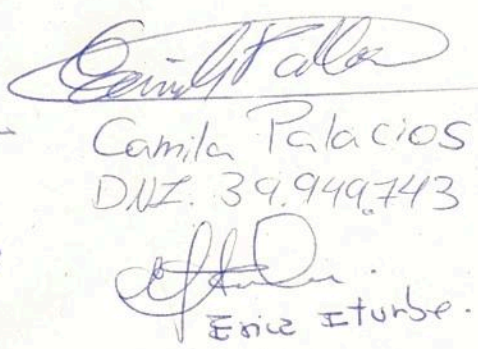 Camila Palacios
DNI. 39.949.743
Erica Iturbe.